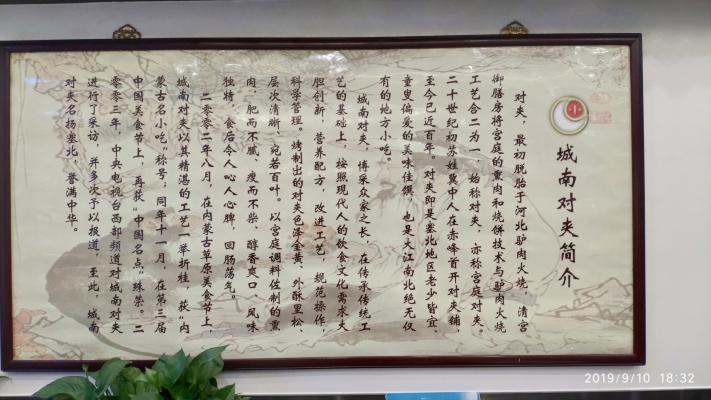 小
城南对夹简介
对夹，最初脱胎于河北驴肉火烧，清宫
御膳房将宫庭的熏肉和烧饼技术与驴肉火烧
工艺合二为一，始称对夹，亦称宫庭对夹。
二十世纪初苏姓冀中人在赤峰首开对夹铺，
至今已近百年。对夹即是塞北地区老少皆宜、
童叟偏爱的美味佳馔，也是大江南北绝无仅
有的地方小吃。
城南对夹，博采众家之长，在传承传统工
艺的基础上，按照现代人的饮食文化需求大
胆创新，营养配方，改进工艺，规范操作，
科学管理。烤制出的对夹色泽金黄、外酥里松、
层次清晰、宛若百叶。以宫庭调料佐制的熏
肉，肥而不腻、瘦而不柴、醇香爽口、风味
独特，食后令人心人心脾，回肠荡气。
二零零二年八月，在内蒙古草原美食节上，
城南对夹以其精湛的工艺一举折桂，获“内
蒙古名小吃”称号；同年十一月，在第三届
中国美食节上，再获“中国名点”殊荣。二
零零三年，中央电视台西部频道对城南对夹
进行了采访，并多次予以报道，至此，城南
对夹名扬塞北，誉满中华。
2019/9/10 18:32